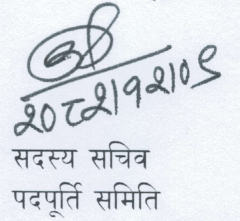 २०८२।१२।०९
सदस्य सचिव
पदपूर्ति समिति